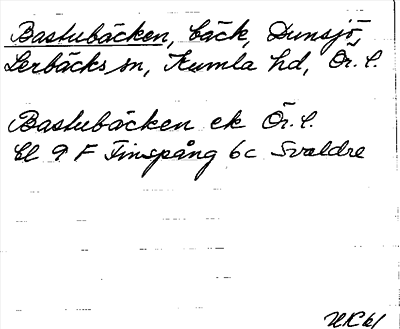 Bastubäcken, bäck, Dunsjö,
Lerbäcks sn, Kumla hd, Ör. l.
Bastubäcken ek Ör. l.
Bl 9 F Finspång 6c Svaldre